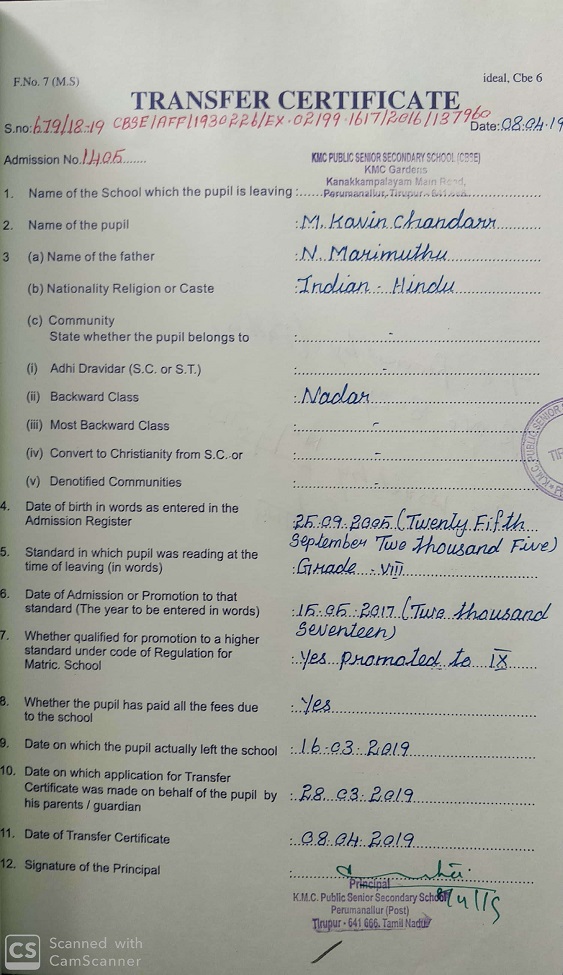 F.No. 7 (M.S)
ideal, Cbe 6
TRANSFER CERTIFICATE
S.no: 679/18-19 CBSE/AFF/1930226/EX-02199-1617/2016/137960 Date: 08.04.19
Admission No. 1405
KMC PUBLIC SENIOR SECONDARY SCHOOL (CBSE)
KMC Gardens
Kanakkampalayam Main Road,
Perumanallur, Tirupur - 641
1. Name of the School which the pupil is leaving :
2. Name of the pupil : M. Kavin Chandarr
3 (a) Name of the father : N. Marimuthu
(b) Nationality Religion or Caste : Indian - Hindu
(c) Community
State whether the pupil belongs to : -
(i) Adhi Dravidar (S.C. or S.T.) : -
(ii) Backward Class : Nadar
(iii) Most Backward Class : -
(iv) Convert to Christianity from S.C. or : -
(v) Denotified Communities : -
4. Date of birth in words as entered in the
Admission Register : 25.09.2005 (Twenty Fifth
September Two thousand Five)
5. Standard in which pupil was reading at the
time of leaving (in words) : Grade - VIII
6. Date of Admission or Promotion to that
standard (The year to be entered in words) : 15.05.2017 (Two thousand
Seventeen)
7. Whether qualified for promotion to a higher
standard under code of Regulation for
Matric. School : Yes promoted to IX
8. Whether the pupil has paid all the fees due
to the school : Yes
9. Date on which the pupil actually left the school : 16.03.2019
10. Date on which application for Transfer
Certificate was made on behalf of the pupil by
his parents / guardian : 28.03.2019
11. Date of Transfer Certificate : 08.04.2019
12. Signature of the Principal :
Principal
K.M.C. Public Senior Secondary School
Perumanallur (Post)
Tirupur - 641 666. Tamil Nadu
K.M.C. PUBLIC SENIOR
TIR
CS Scanned with
CamScanner